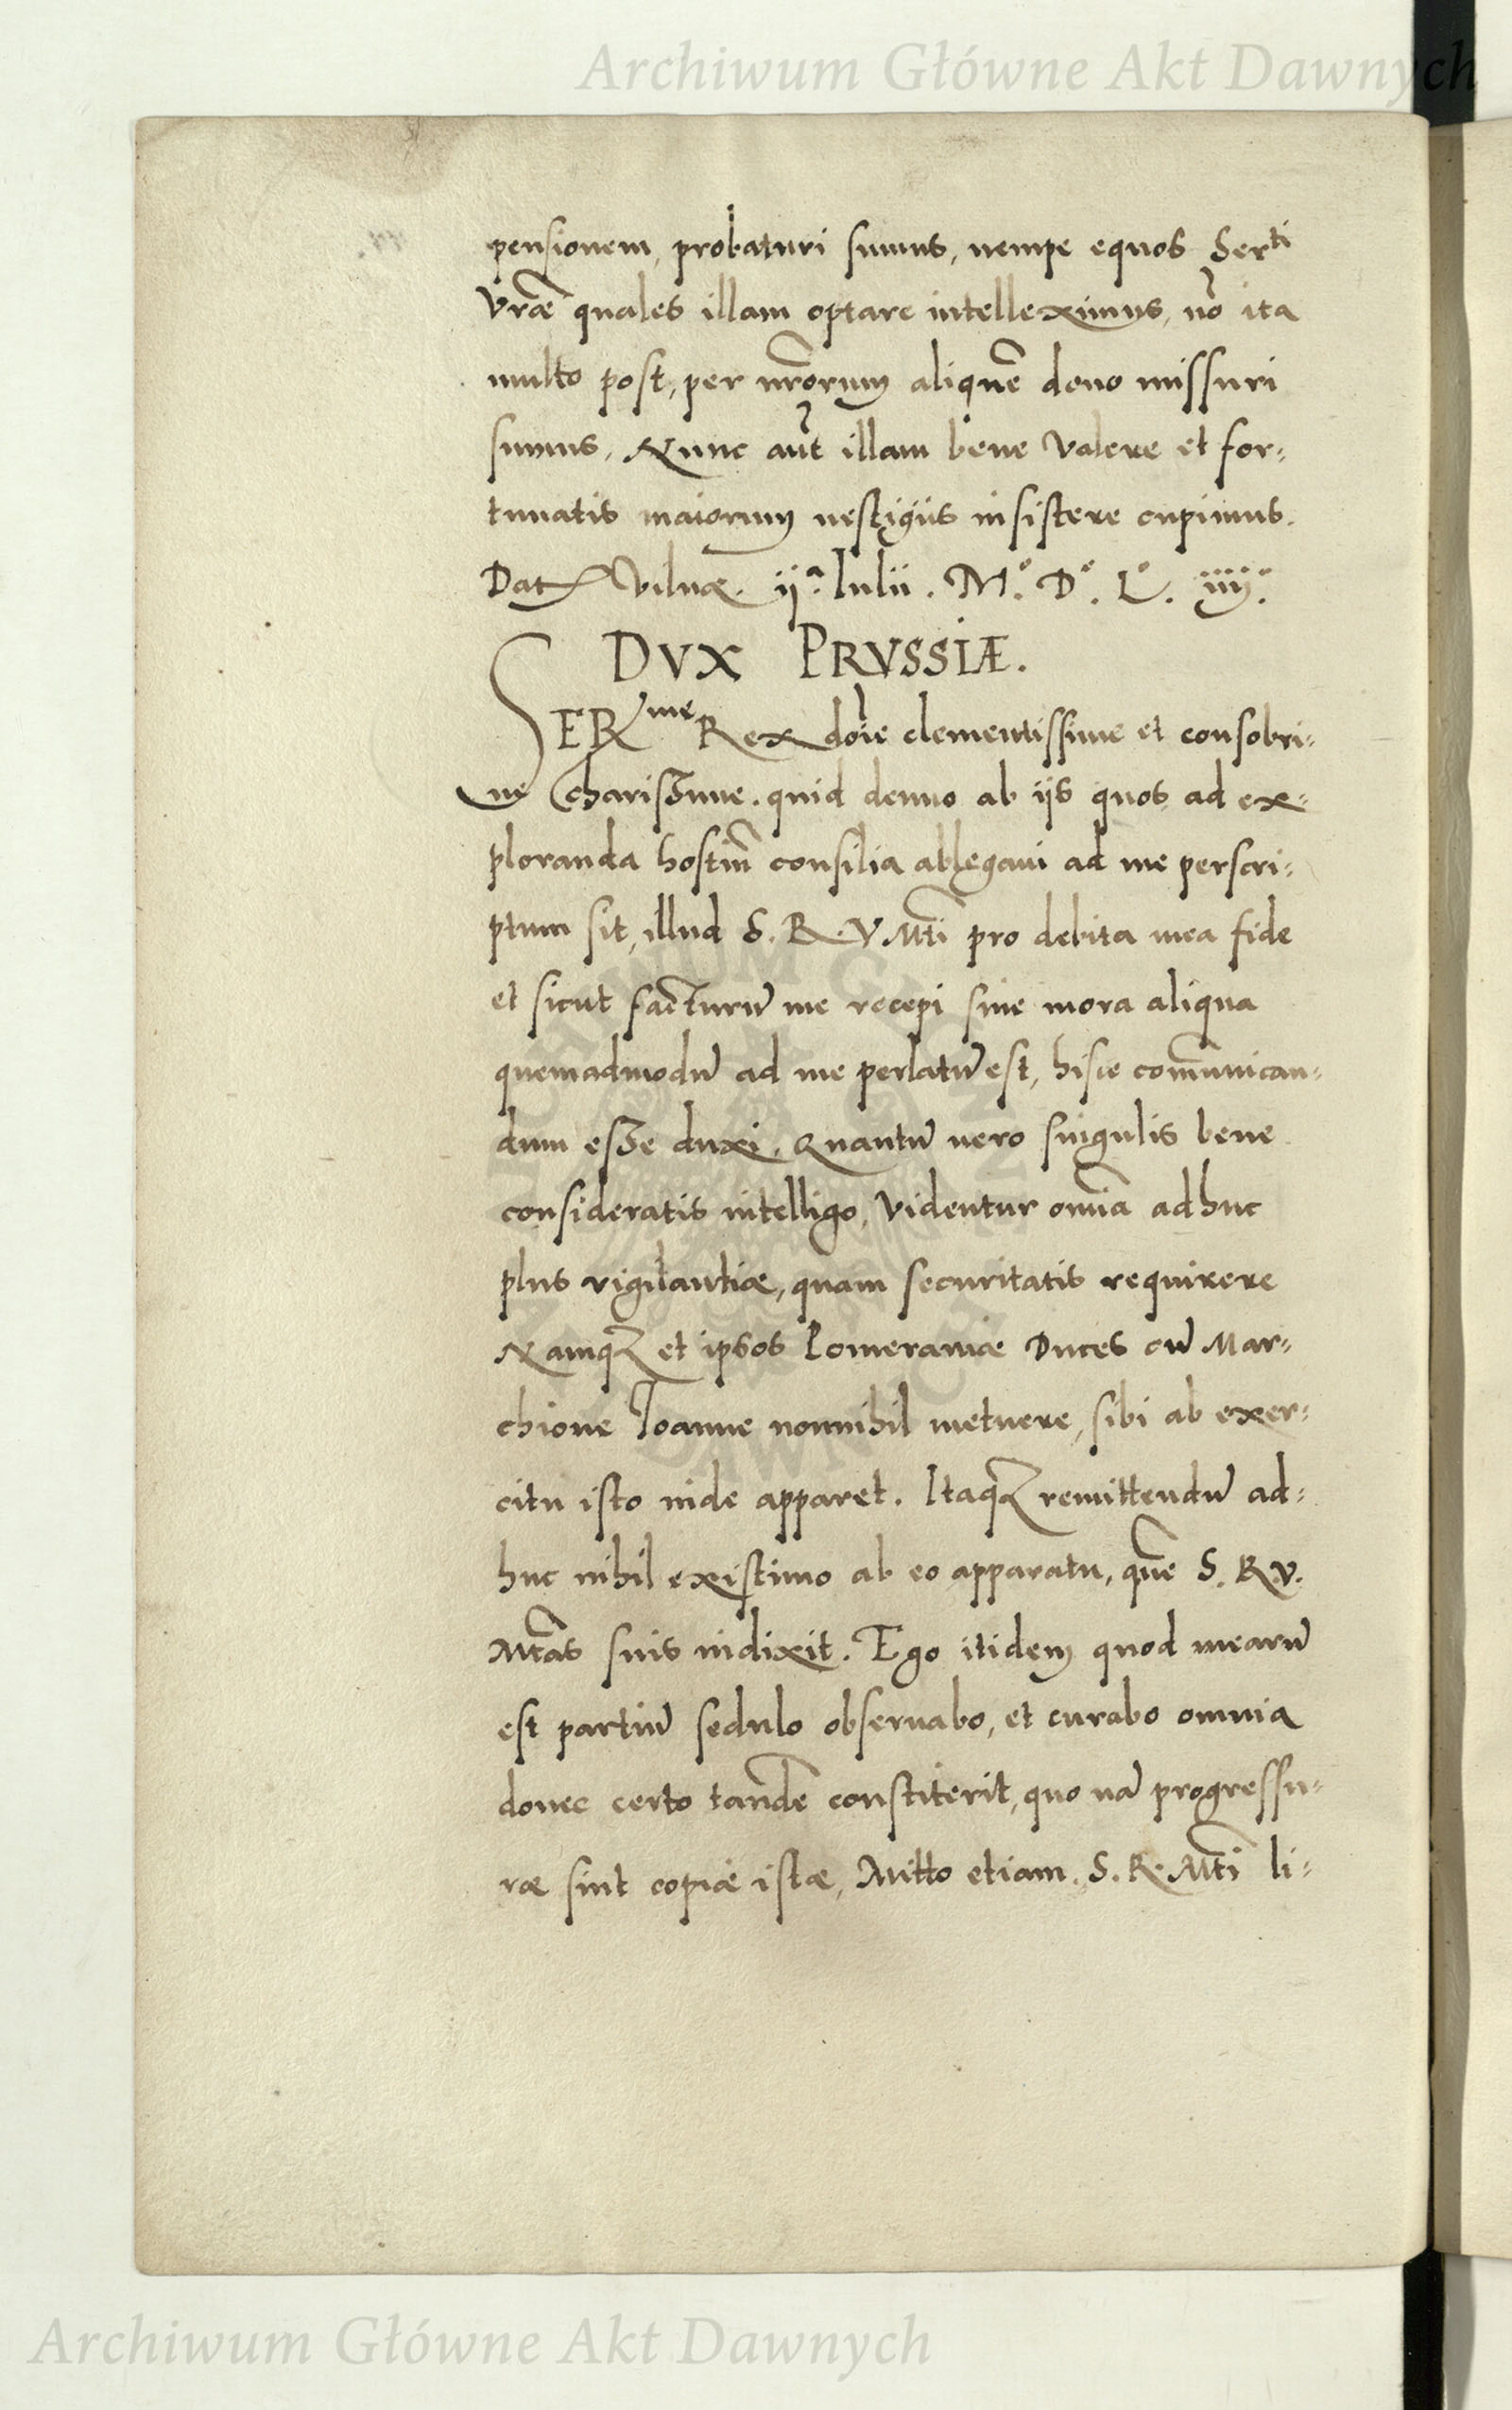 Archiwum Główne Akt Dawnych
pensionem, probaturi sumus, nempe equos Serti
Vr̃æ quales illam optare intelleximus, nõ ita
multo post, per nr̃orum aliquẽ dono missuri
sumus. Nunc aũt illam bene Valere et for-
tunatis maiorum uestigiis insistere cupimus.
Dat Vilnæ. ijª. Iulii. M°. D°. L°. iiij°.
DVX PRVSSIÆ.
SER me Rex dõie clementissime et consobri-
ne Charissime. quid denuo ab ijs quos ad ex-
ploranda hostiũ consilia ablegaui ad me perscri-
ptum sit, illud S. R. V Mti pro debita mea fide
et sicut facturũ me recepi sine mora aliqua
quemadmodũ ad me perlatũ est, hisce com̃unican-
dum esse duxi. Quantũ uero singulis bene
consideratis intelligo, Videntur om̃ia adhuc
plus vigilantiæ, quam securitatis requirere
Namqꝫ et ipsos Pomeraniæ Duces cũ Mar-
chione Ioanne nonnihil metuere, sibi ab exer-
citu isto inde apparet. Itaqꝫ remittendũ ad-
huc nihil existimo ab eo apparatu, quẽ S. R. V.
Mtãs suis indixit. Ego itidem quod mearũ
est partiũ sedulo obseruabo, et curabo omnia
donec certo tandẽ constiterit, quo nã progressu-
ræ sint copiæ istæ, Mitto etiam. S. R. Mti li-
Archiwum Główne Akt Dawnych